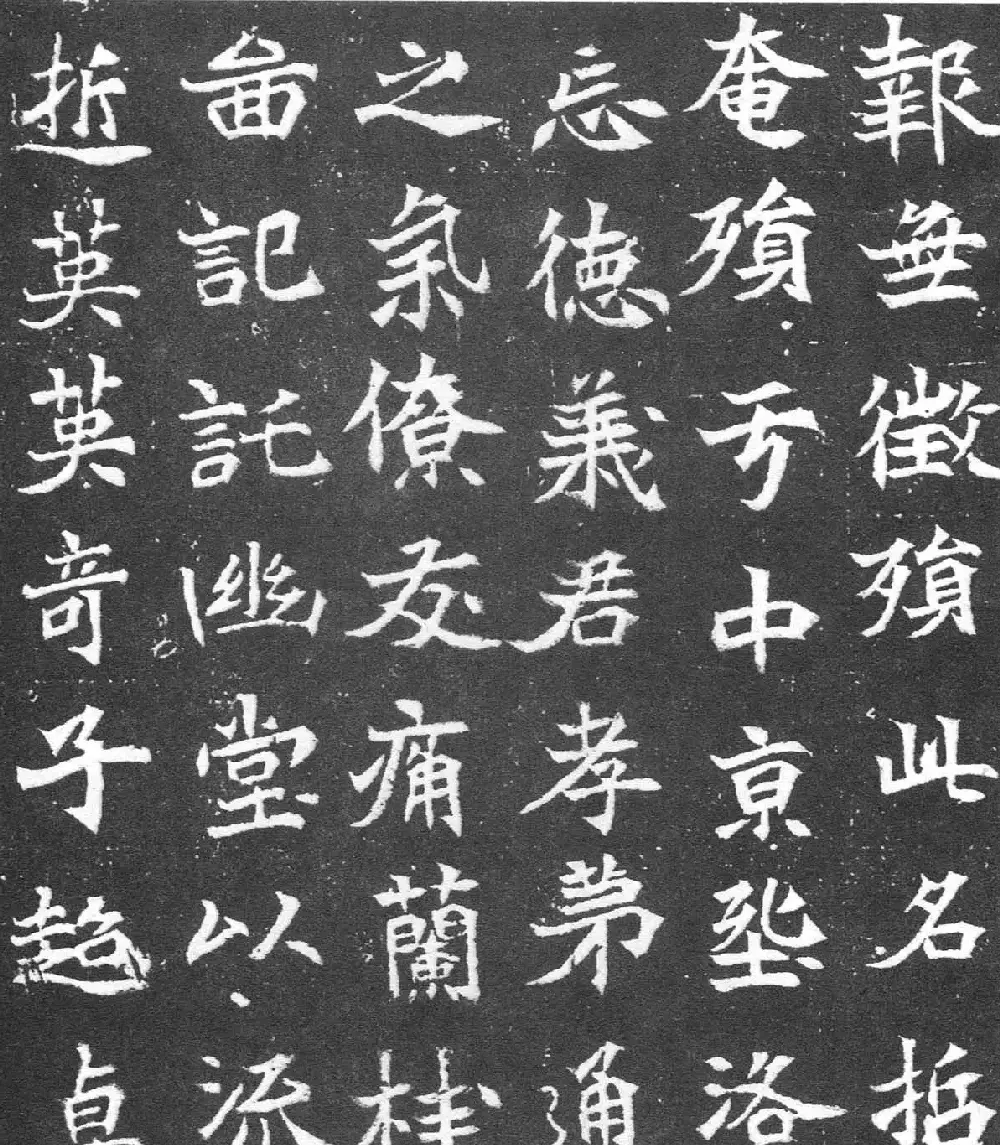 報無徵殞此名哲
奄殞亐中亰洛
忘德義君孝弟通
之氣僚友痛蘭桂
啚記託幽堂以流
英英奇子超卓